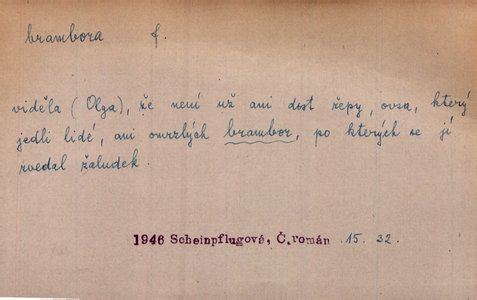 brambora f.
viděla (Olga), že není už ani dost řepy, ovsa, který
jedli lidé, ani omrzlých brambor, po kterých se jí
zvedal žaludek.
1946 Scheinpflugové, Č.román .15. 32.